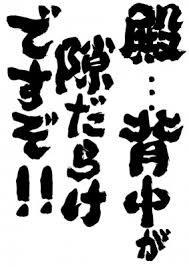 殿…背中が
隙だらけ
ですぞ!!